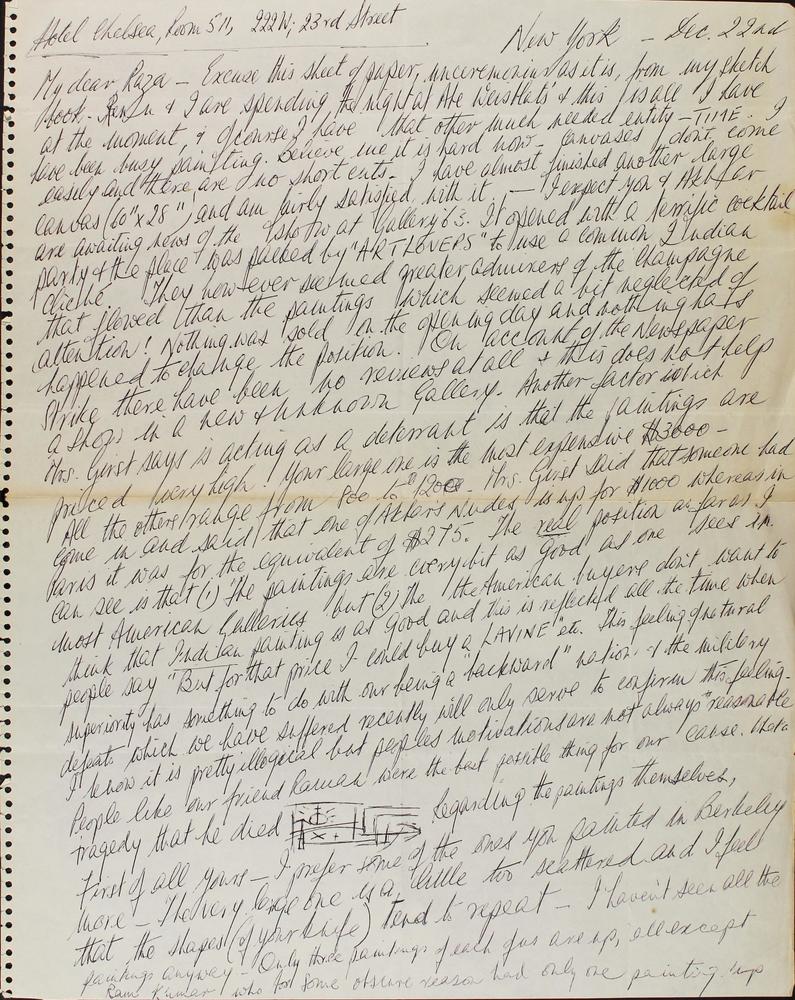 Hotel Chelsea, Room 511, 222 W, 23rd Street
New York - Dec. 22nd
My dear Raza - Excuse this sheet of paper, unceremonious as it is, from my sketch
book. & I are spending the night at Abe Weisblat's & this is all I have
at the moment, & of course I have that other much needed entity - TIME. I
have been busy painting. Believe me it is hard now - Canvases don't come
easily and there are no short cuts. I have almost finished another large
canvas (60" x 28") and am fairly satisfied with it. - I expect you & Akbar
are awaiting news of the show at Gallery 63. It opened with a terrific cocktail
party & the place was packed by "ART LOVERS" to use a common Indian
cliché. They however seemed greater admirers of the Champagne
that flowed than the paintings which seemed a bit neglected of
attention! Nothing was sold on the opening day and nothing has
happened to change the position. On account of the Newspaper
Strike there have been no reviews at all & this does not help
a show in a new & unknown Gallery. Another factor which
Mrs. Girst says is acting as a deterrant is that the paintings are
priced very high! Your large one is the most expensive $3000 -
All the others range from 800 to 1200. Mrs. Girst said that someone had
come in and said that one of Akbars Nudes, is up for $1000 whereas in
Paris it was for the equivalent of $275. The real position as far as I
can see is that (1) The paintings are every bit as Good as one sees in
most American Galleries but (2) the the American buyers don't want to
think that Indian painting is as Good and this is reflected all the time when
people say "But for that price I could buy a LAVINE" etc. This feeling of natural
superiority has something to do with our being a "backward" nation & the military
defeats which we have suffered recently will only serve to confirm this feeling -
I know it is pretty illogical but peoples motivations are not always "reasonable
People like our friend Raman were the best possible thing for our cause. What a
tragedy that he died Regarding the paintings themselves,
First of all yours - I prefer some of the ones you painted in Berkeley
more - The very large one is a little too scattered and I feel
that the shapes (of your Life) tend to repeat - I haven't seen all the
paintings anyway - Only three paintings of each of us are up, all except
Ram Kumar who for some obscure reason had only one painting up